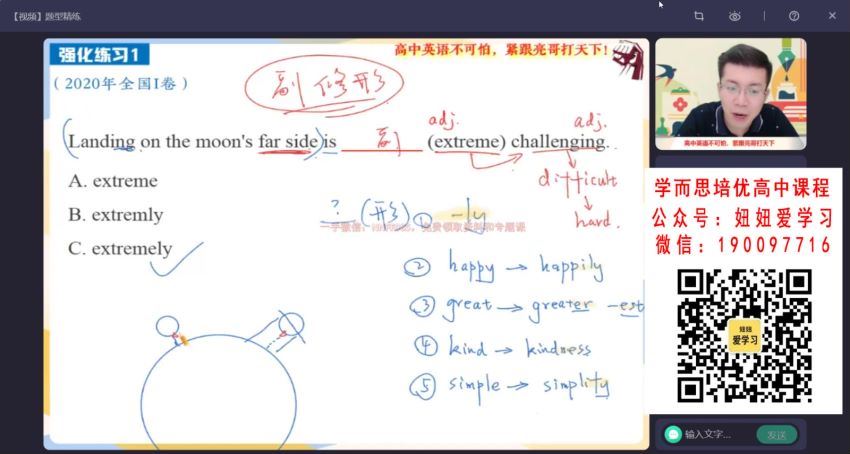 【视频】题型精练
强化练习1
高中英语不可怕，紧跟亮哥打天下！
（2020年全国I卷）
副 修 形
adj.
adj.
Landing on the moon's far side is 副 (extreme) challenging.
A. extreme
difficult
B. extremly
? (形) ① -ly
hard.
C. extremely
② happy → happily
③ great → greater -est
④ kind → kindness
⑤ simple → simplity
高中英语不可怕，紧跟亮哥打天下
学而思培优高中课程
公众号：妞妞爱学习
微信：190097716
妞妞
爱学习
输入文字...
发送